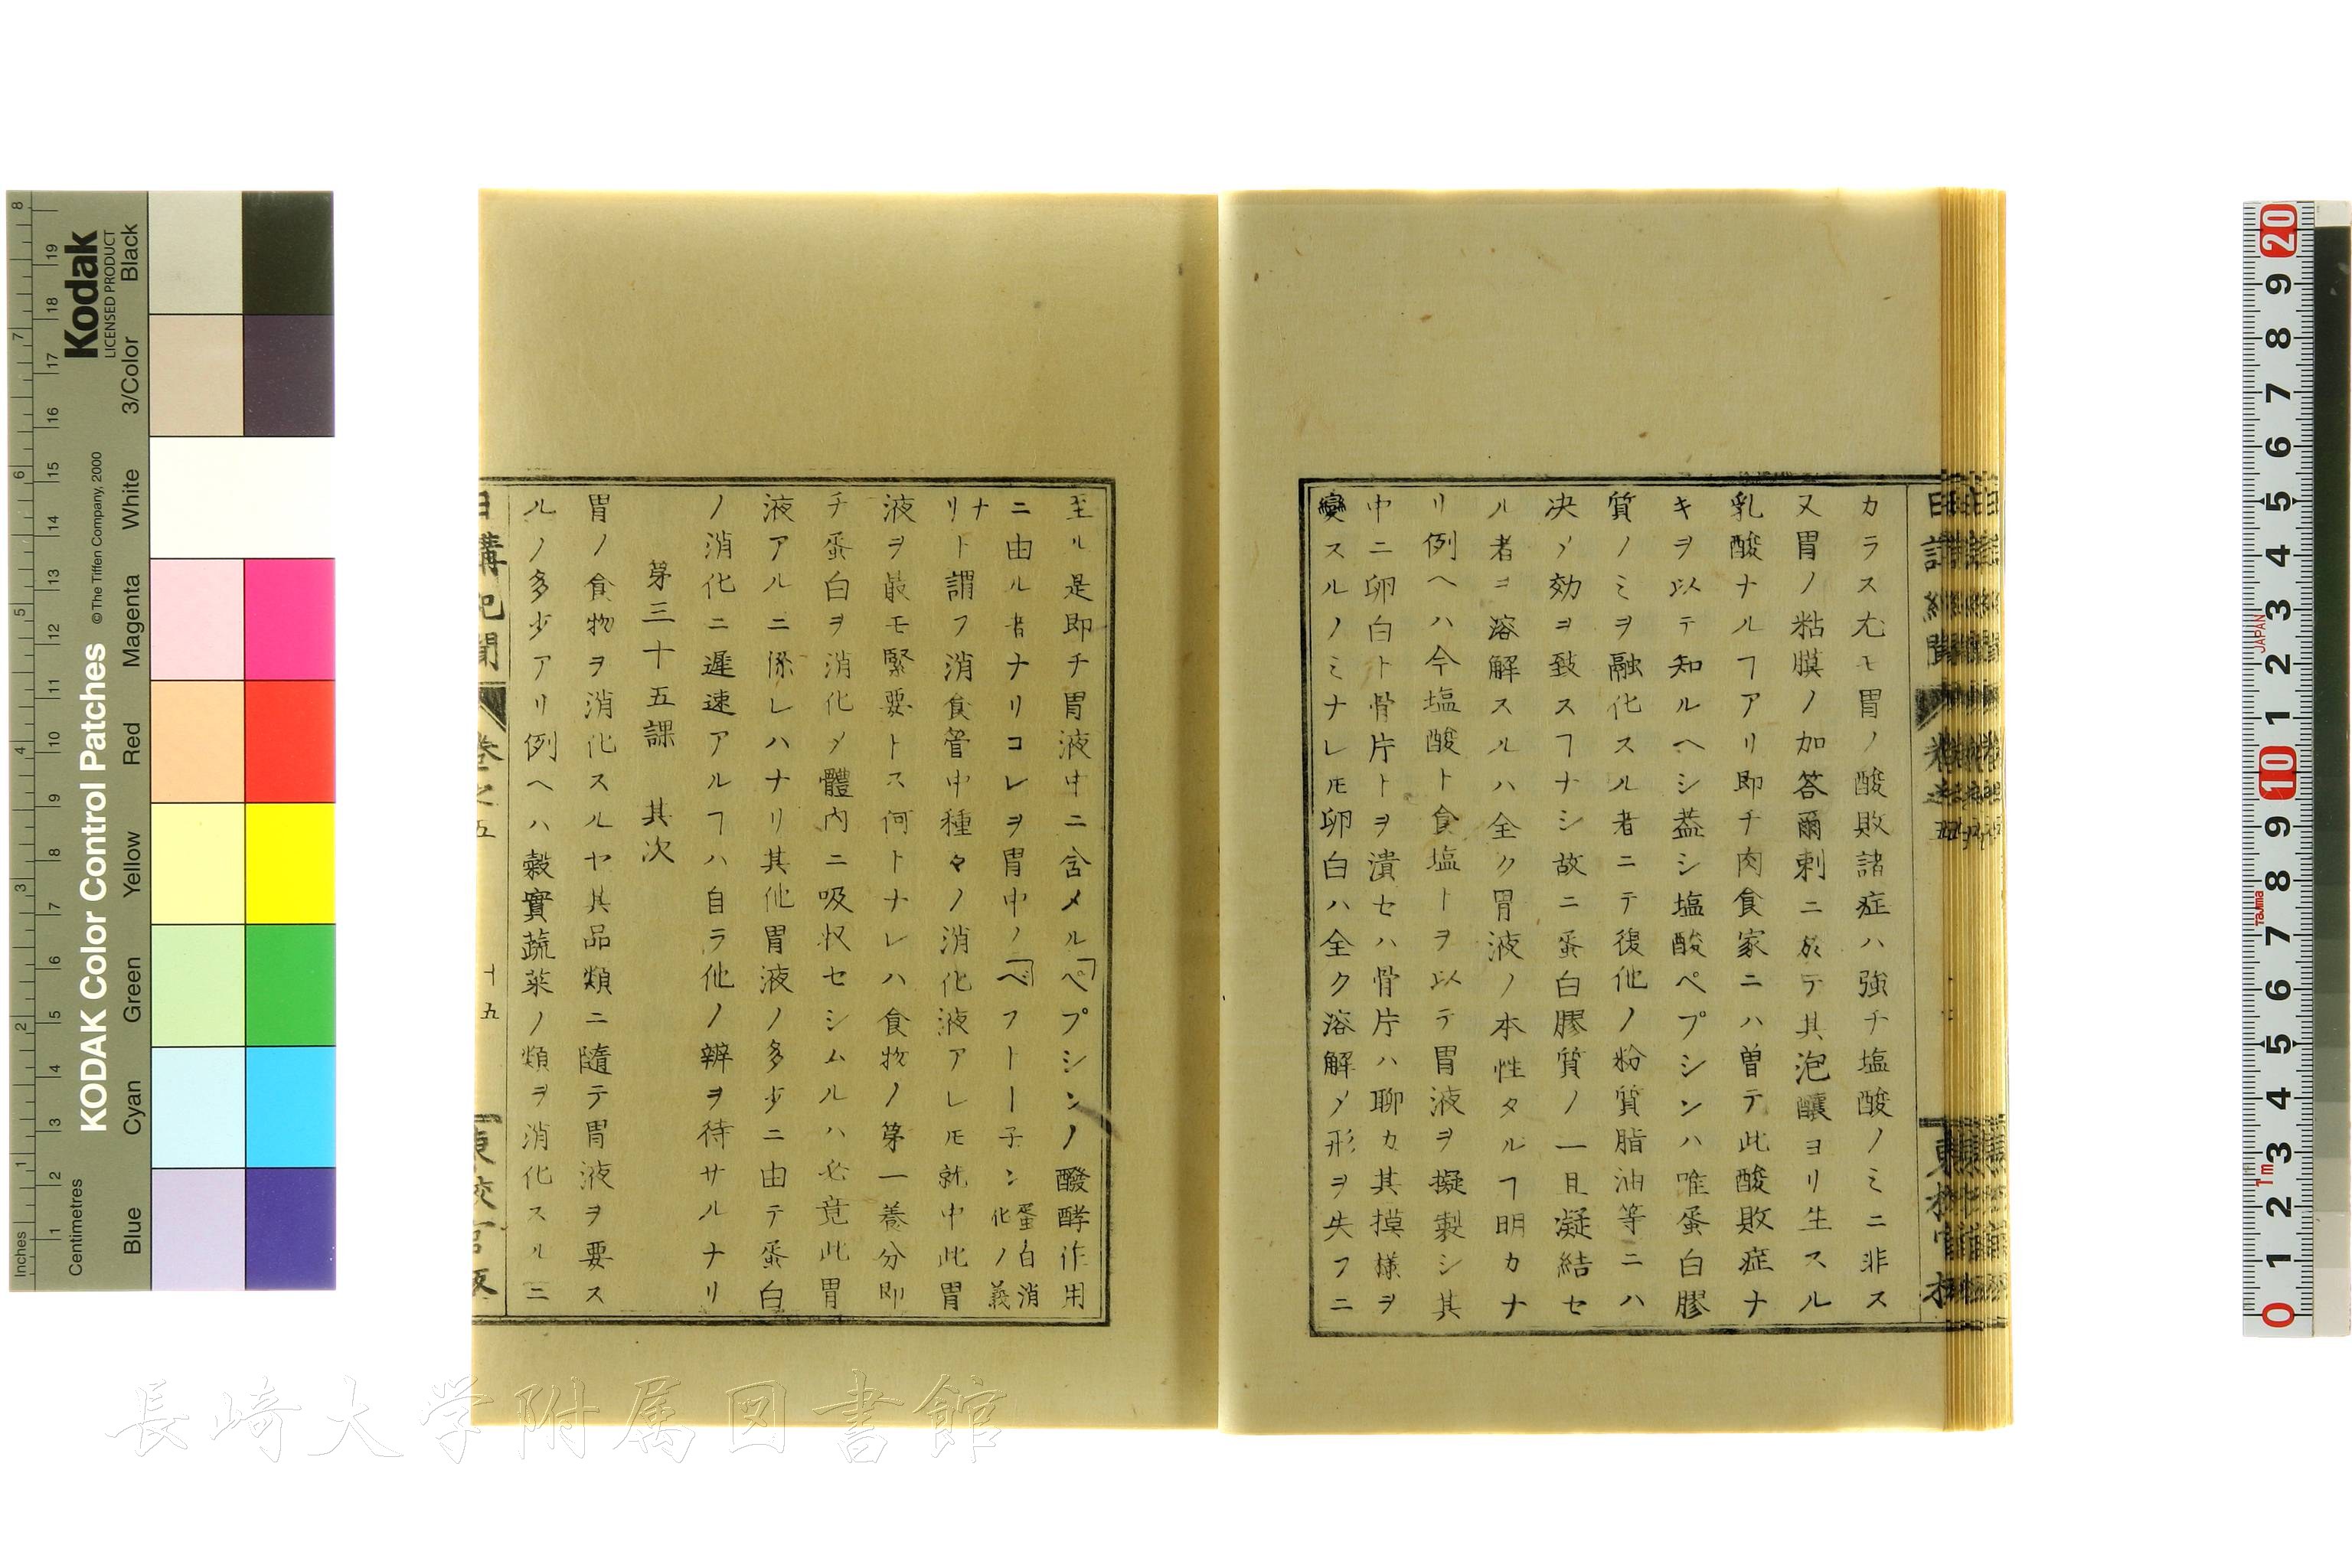 カラス尤モ胃ノ酸敗諸症ハ強チ塩酸ノミニ非ス
又胃ノ粘膜ノ加答爾剌ニ於テ其泡釀ヨリ生スル
乳酸ナルヿアリ即チ肉食家ニハ曽テ此酸敗症ナ
キヲ以テ知ルヘシ葢シ塩酸ペプシンハ唯蛋白膠
質ノミヲ融化スル者ニテ復他ノ粉質脂油等ニハ
决乄効ヲ致スヿナシ故ニ蛋白膠質ノ一旦凝結セ
ル者ヨ溶解スルハ全ク胃液ノ本性タルヿ明カナ
リ例ヘハ今塩酸ト食塩トヲ以テ胃液ヲ擬製シ其
中ニ卵白ト骨片トヲ漬セハ骨片ハ聊カ其摸様ヲ
變スルノミナレ𪜈卵白ハ全ク溶解乄形ヲ失フニ
至ル是即チ胃液中ニ含メル「ペプシンノ醱酵作用
ニ由ル者ナリコレヲ胃中ノ「ペフトーネン蛋白消化ノ義ナ
リト謂フ消食管中種々ノ消化液アレ𪜈就中此胃
液ヲ最モ緊要トス何トナレハ食物ノ第一養分即
チ蛋白ヲ消化乄體内ニ吸収セシムルハ必竟此胃
液アルニ係レハナリ其他胃液ノ多少ニ由テ蛋白
ノ消化ニ遲速アルヿハ自ラ他ノ辨ヲ待サルナリ
第三十五課 其次
胃ノ食物ヲ消化スルヤ其品類ニ隨テ胃液ヲ要ス
ルノ多少アリ例ヘハ穀實蔬菜ノ類ヲ消化スルニ
日講記聞 卷之五 十五 東校官版
KODAK Color Control Patches
©The Tiffen Company, 2000
Kodak
LICENSED PRODUCT
Inches
Centimetres
Blue Cyan Green Yellow Red Magenta White 3/Color Black
長崎大学附属図書館